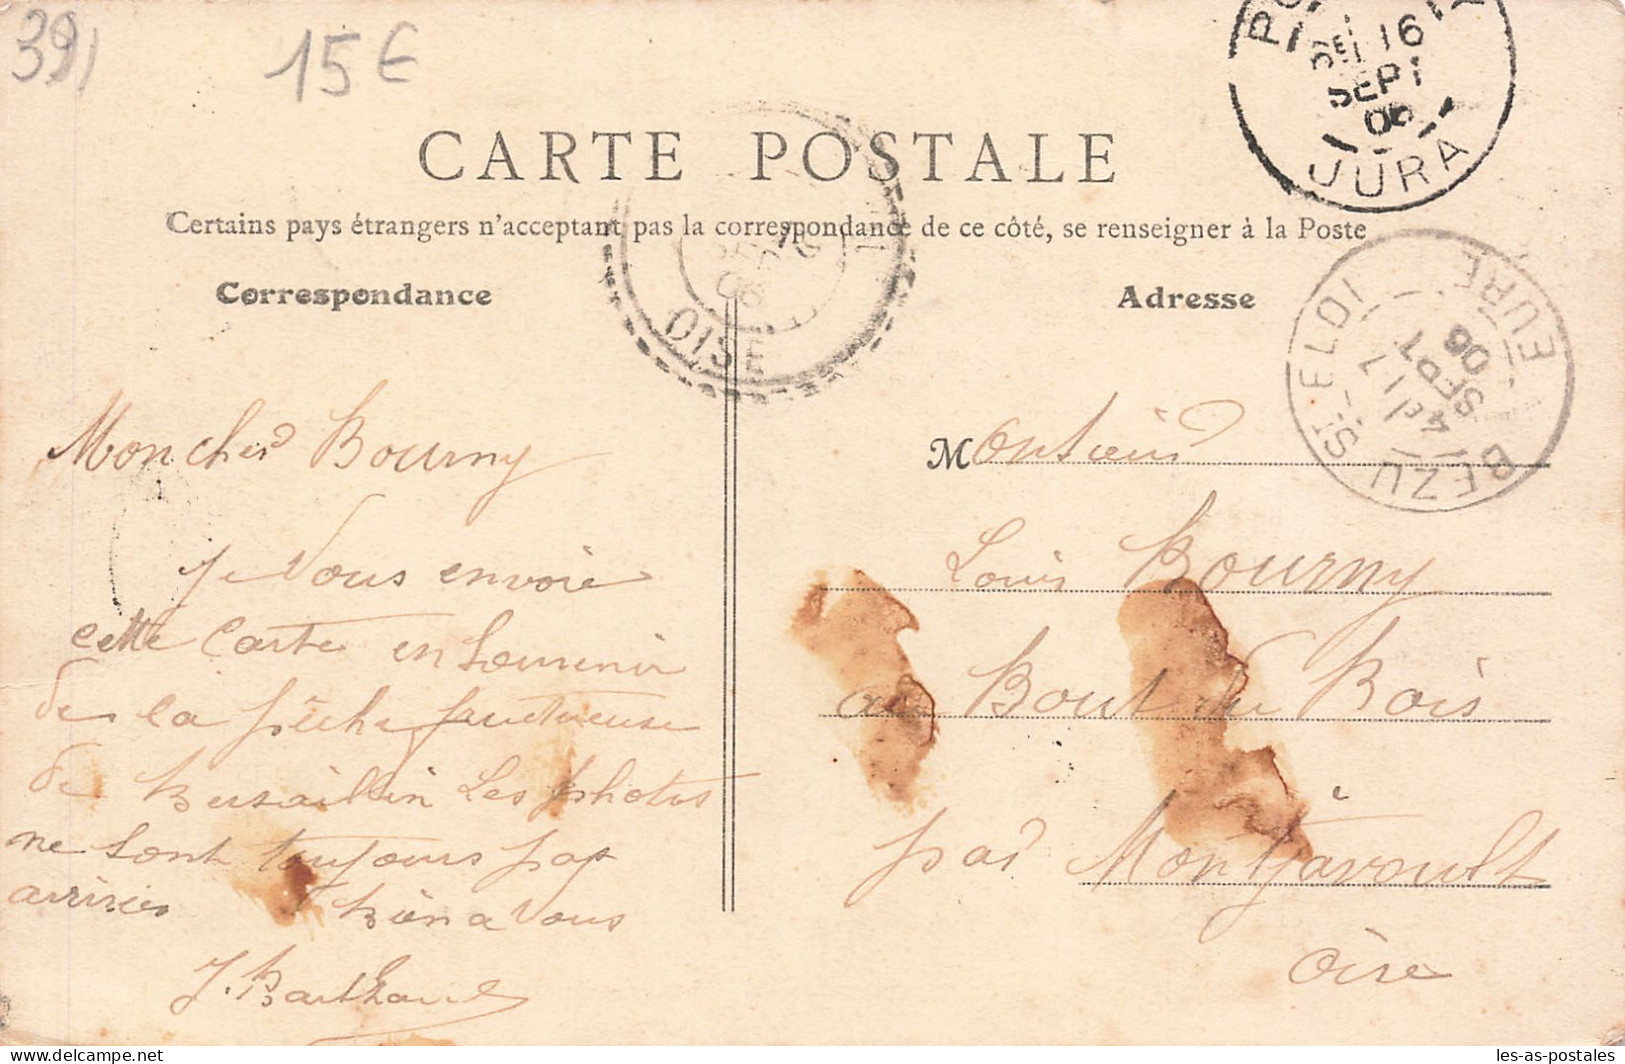 391
15 €
CARTE POSTALE
Certains pays étrangers n'acceptant pas la correspondance de ce côté, se renseigner à la Poste
Correspondance
Adresse
16
SEPT
06
JURA
06
OISE
BEZU-ST-ELOI
EURE
4e 17
SEPT
06
Mon cher Bourny
Je vous envoie
cette Carte en Souvenir
de la pêche fructueuse
de Les photos
ne sont toujours pas
arrivées bien a vous
J. Barthaud
Monsieur
Louis Bourny
au Bout du Bois
par Montjavoult
Oise
les-as-postales
www.delcampe.net